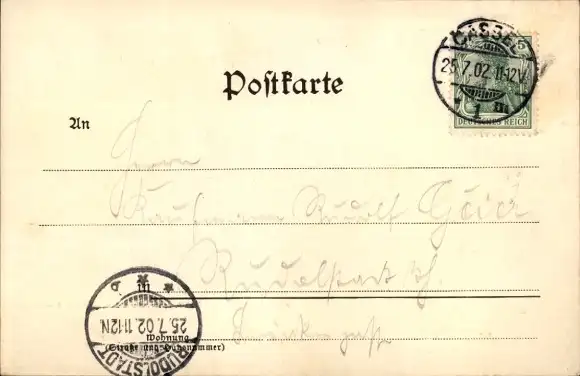 CASSEL
5
25.7.02.11-12V.
* 1 m
DEUTSCHES REICH
Postkarte
An
Herrn
Kaufmann Rudolf
Rudolstadt
in
25.7.02.11-12N.
RUDOLSTADT
Wohnung
(Straße und Hausnummer)